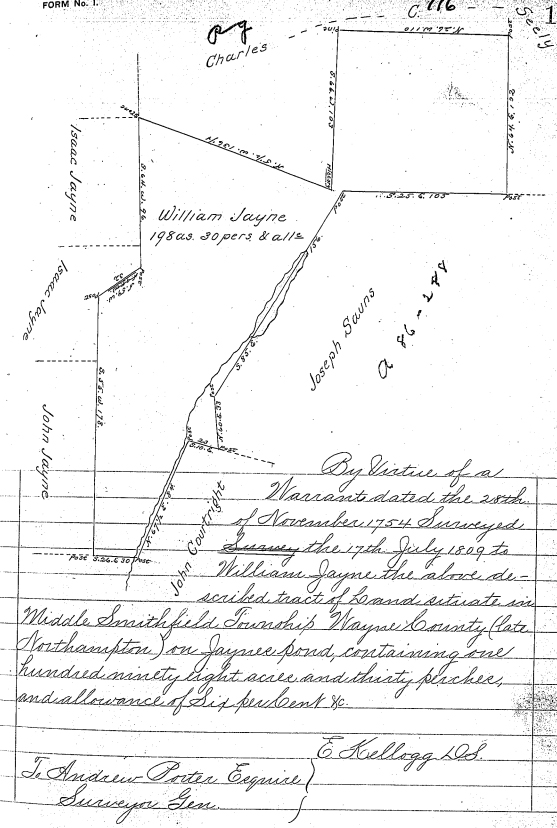 FORM No. 1.
C. 116
1
Seely
pg
Charles
Pine
N. 26. W. 110
Post
S. 66. W. 103
Isaac Jayne
S. 64. W. 96
William Jayne
198 as. 30 pers. & alls
S. 25. E. 105
Post
Post
Isaac Jayne
Post
Joseph Savns
a 86-288
S. 35. E.
S. 55. W. 178
John Jayne
S. 10. E.
Post
John Courtright
Post S. 26. E 30 Post
By Virtue of a
Warrant dated the 28th
of November 1754 Surveyed
Survey the 17th July 1809 to
William Jayne the above de-
scribed tract of Land situate in
Middle Smithfield Township Wayne County (late
Northampton) on Jaynes pond, containing one
hundred ninety eight acres and thirty perches,
and allowance of Six per Cent &c.
E Kellogg D.S.
To Andrew Porter Esquire
Surveyor Gen.